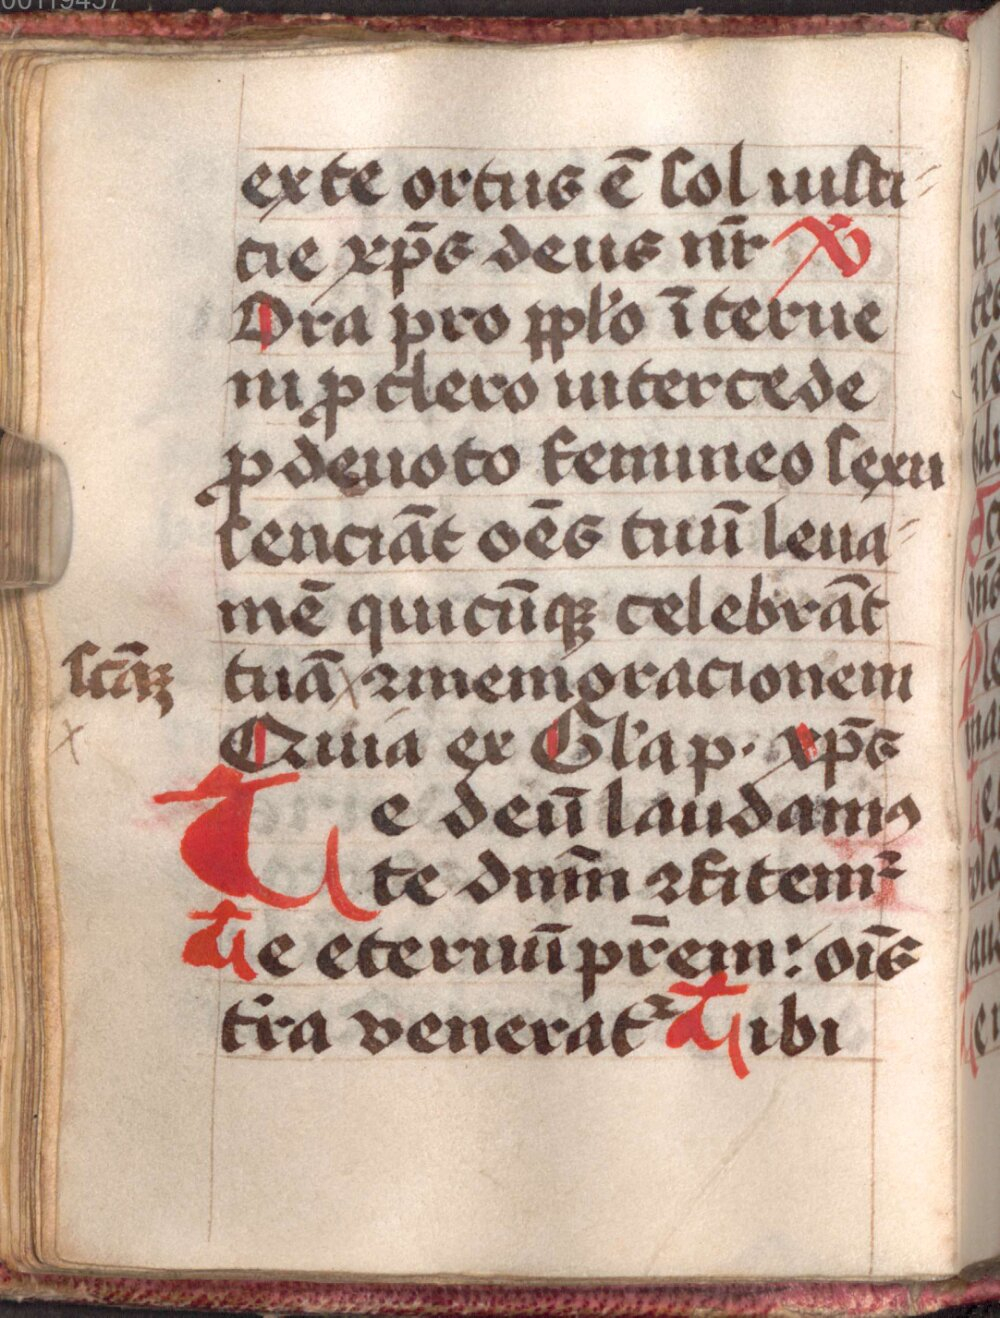 00119457
ex te ortus ē sol iusti⸗
cie xp̄s deus nr̄ ℣
Ora pro pplo īterue
ni ꝓ clero intercede
ꝓ deuoto femineo sexu
senciāt oēs tuū leua⸗
mē quicūqꝫ celebrāt
scāꝫ
tuā x ꝯmemoracionem
x
Quia ex Gl'a p. xp̄s
Te deū laudamꝰ
te dnm̄ ꝯfitemͬ
Te eternū pr̄em: oīs
tr̄a veneratͬ Tibi